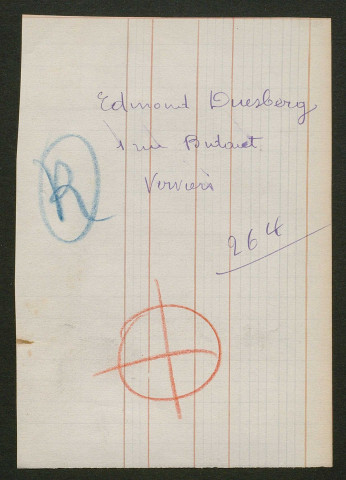 Edmond Duesberg
1 rue
Verviers
R
264